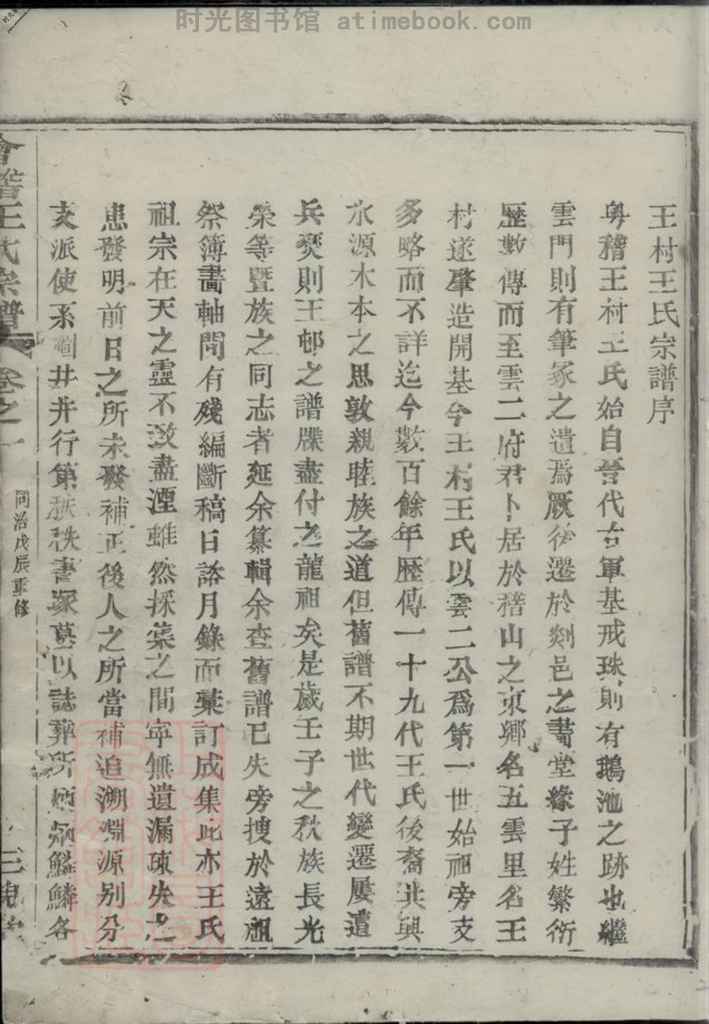 时光图书馆 atimebook.com
王村王氏宗譜序
粤稽王村王氏始自晉代右軍基戒珠則有鵝池之跡也繼
雲門則有筆冢之遺爲厥後遷於剡邑之書堂緣子姓繁衍
歷數傳而至雲二府君卜居於稽山之東鄉名五雲里名王
村遂肇造開基今王村王氏以雲二公爲第一世始祖旁支
多略而不詳迄今數百餘年歷傳一十九代王氏後裔共興
水源木本之思敦親睦族之道但舊譜不期世代變遷屢遭
兵燹則王邨之譜牒盡付之龍祖矣是歲壬子之秋族長光
榮等暨族之同志者延余纂輯余查舊譜已失旁搜於遠祖
祭簿畵軸間有殘編斷稿日諮月錄而彙訂成集此亦王氏
祖宗在天之靈不致盡湮雖然採菜之間寧無遺漏疎失之
患發明前日之所未發補正後人之所當補追溯淵源别分
支派使系圖井井行第秩秩書冢墓以誌葬所 鱗鱗各
會稽王氏宗譜 卷之一 同治戊辰重修 三槐堂